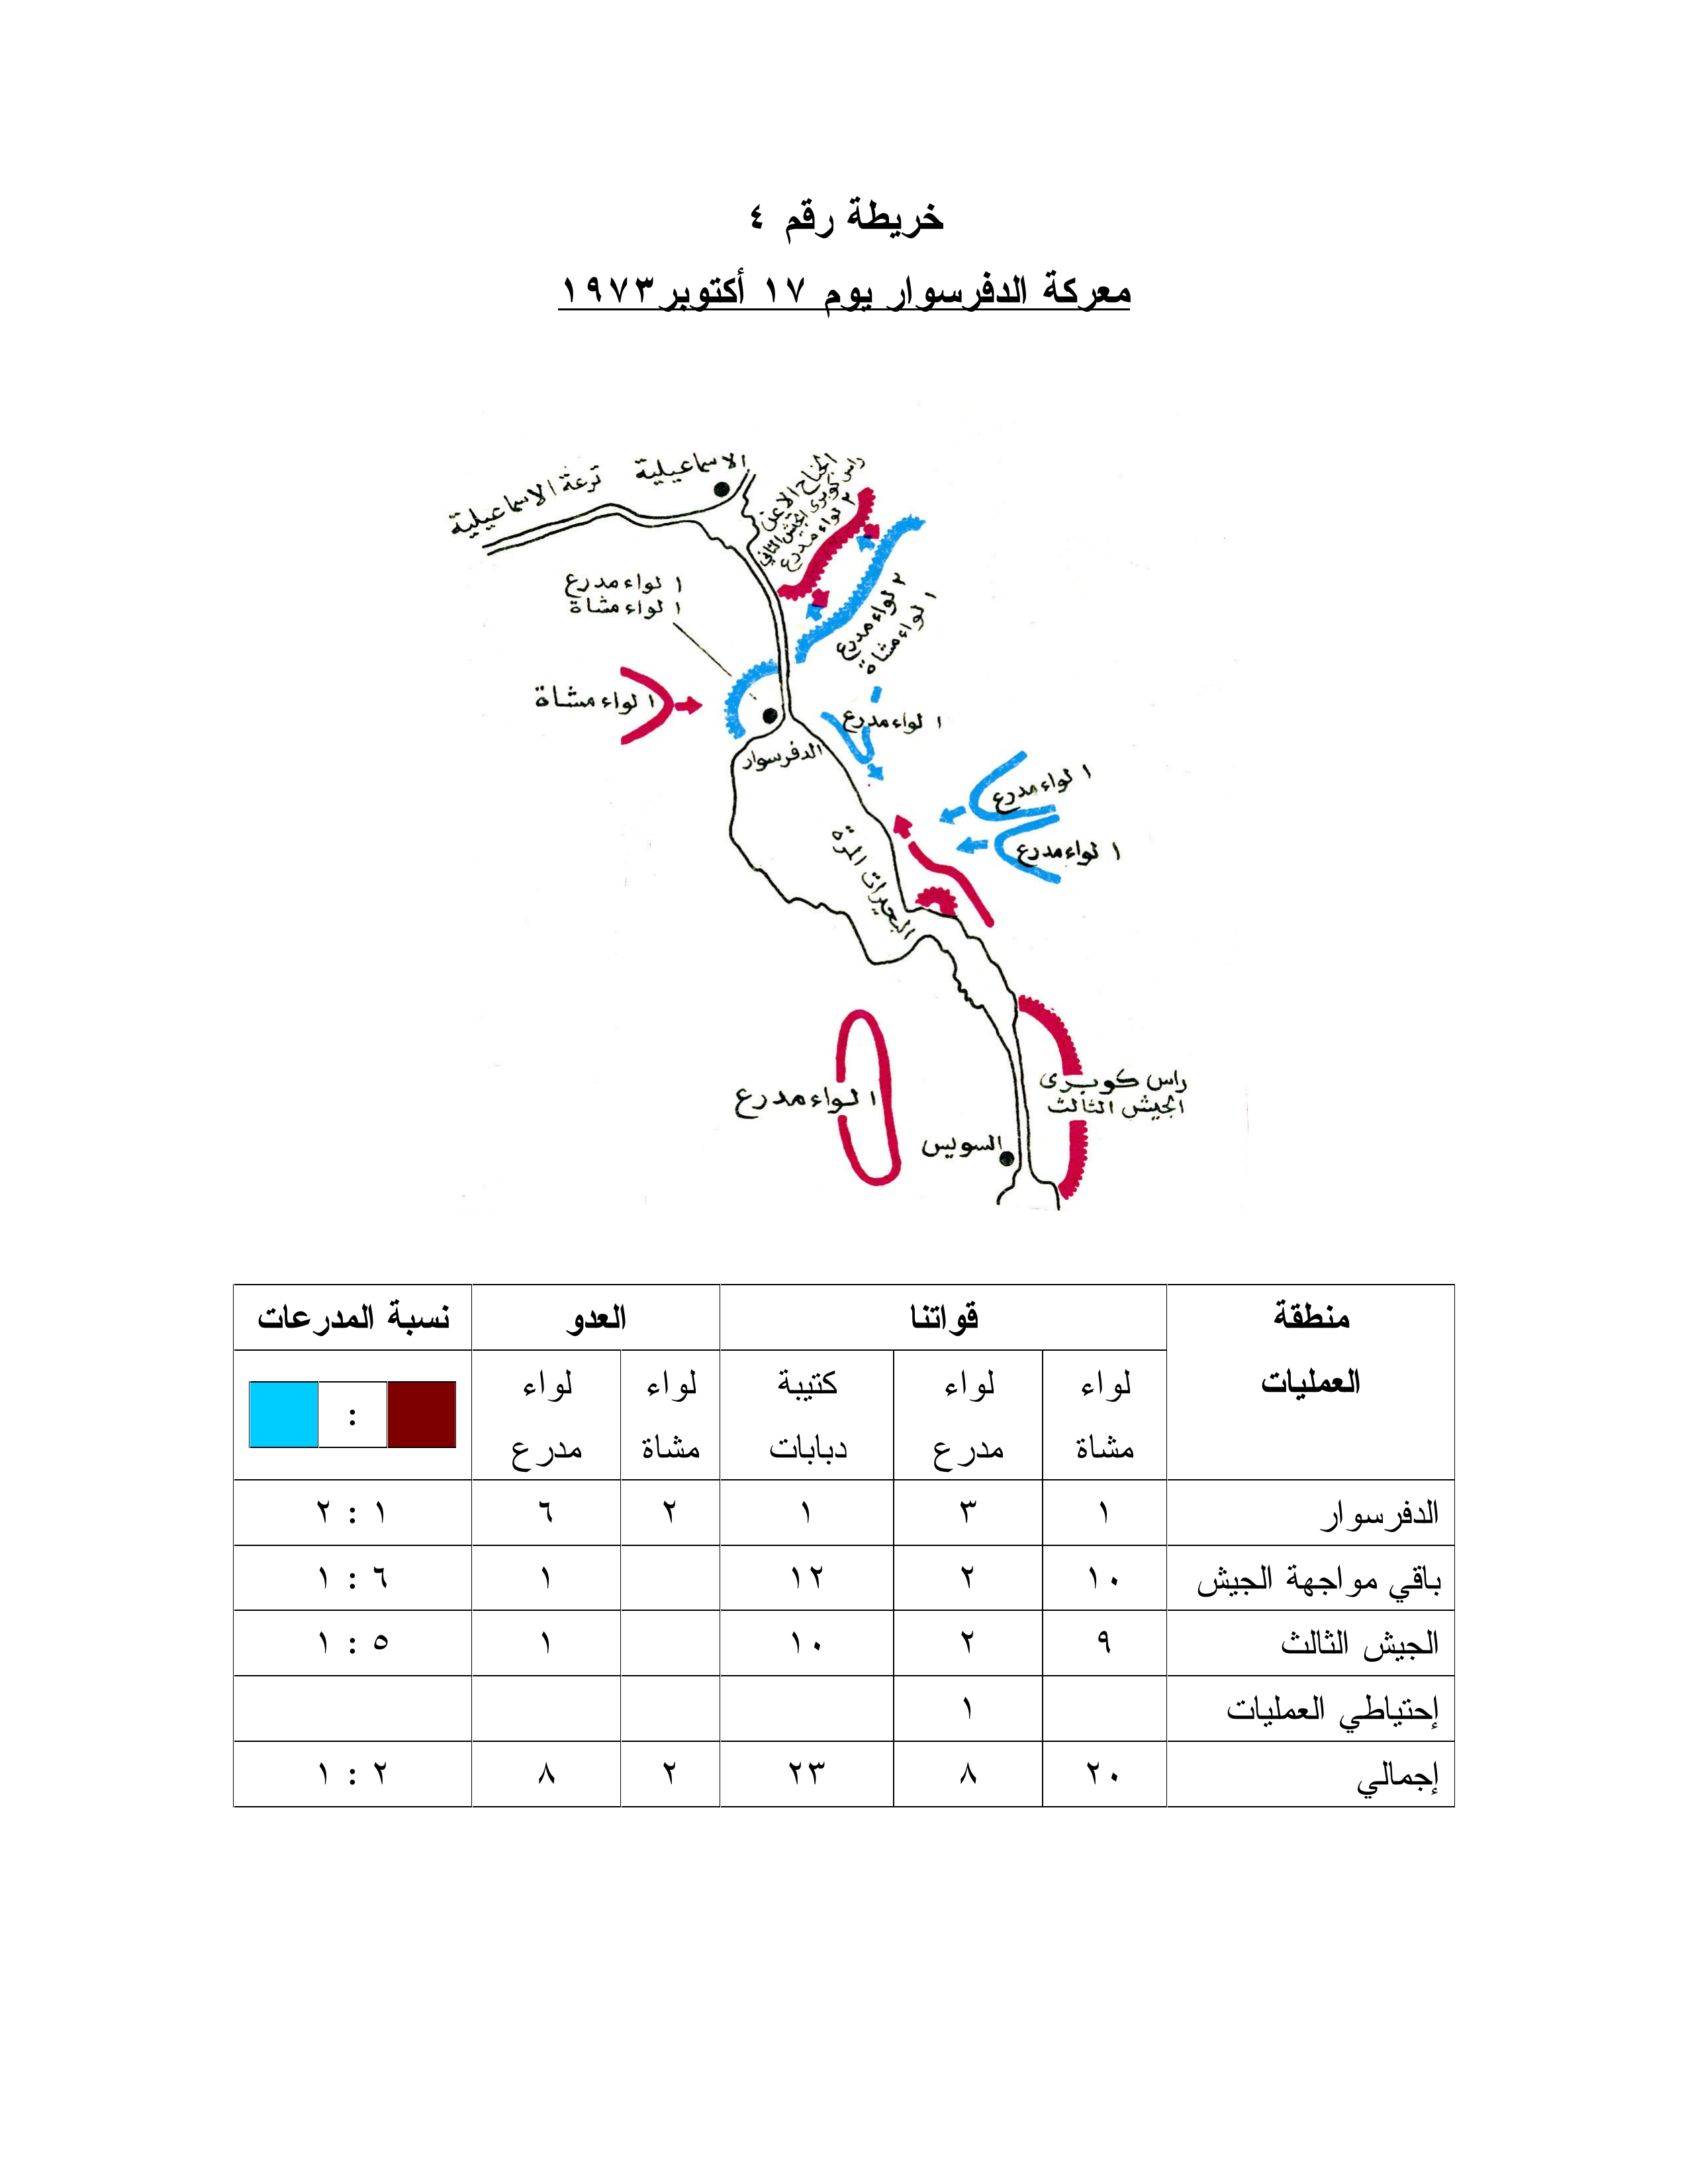 خريطة رقم ٤
معركة الدفرسوار يوم ١٧ أكتوبر١٩٧٣
الاسماعيلية
ترعة الاسماعيلية
الجناح الايمن
راس كوبرى الجيش الثاني
٢ لواء مدرع
١ لواء مدرع
١ لواء مشاة
٢ لواء مدرع
١ لواء مشاة
١ لواء مشاة
١ لواء مدرع
الدفرسوار
١ لواء مدرع
١ لواء مدرع
البحيرات المرة
راس كوبرى
الجيش الثالث
١ لواء مدرع
السويس
منطقة العمليات قواتنا العدو نسبة المدرعات
لواء مشاة لواء مدرع كتيبة دبابات لواء مشاة لواء مدرع :
الدفرسوار ١ ٣ ١ ٢ ٦ ١ : ٢
باقي مواجهة الجيش ١٠ ٢ ١٢ ١ ٦ : ١
الجيش الثالث ٩ ٢ ١٠ ١ ٥ : ١
إحتياطي العمليات ١
إجمالي ٢٠ ٨ ٢٣ ٢ ٨ ٢ : ١